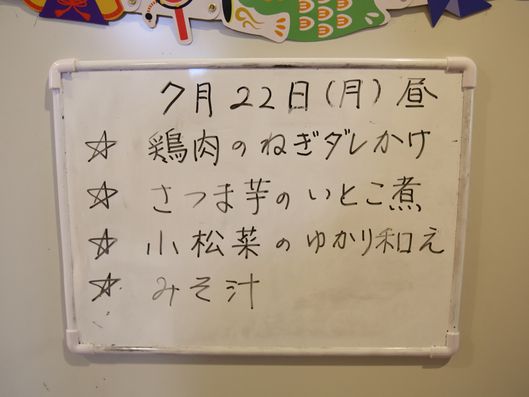 7月22日(月)昼
☆ 鶏肉のねぎダレかけ
☆ さつま芋のいとこ煮
☆ 小松菜のゆかり和え
☆ みそ汁